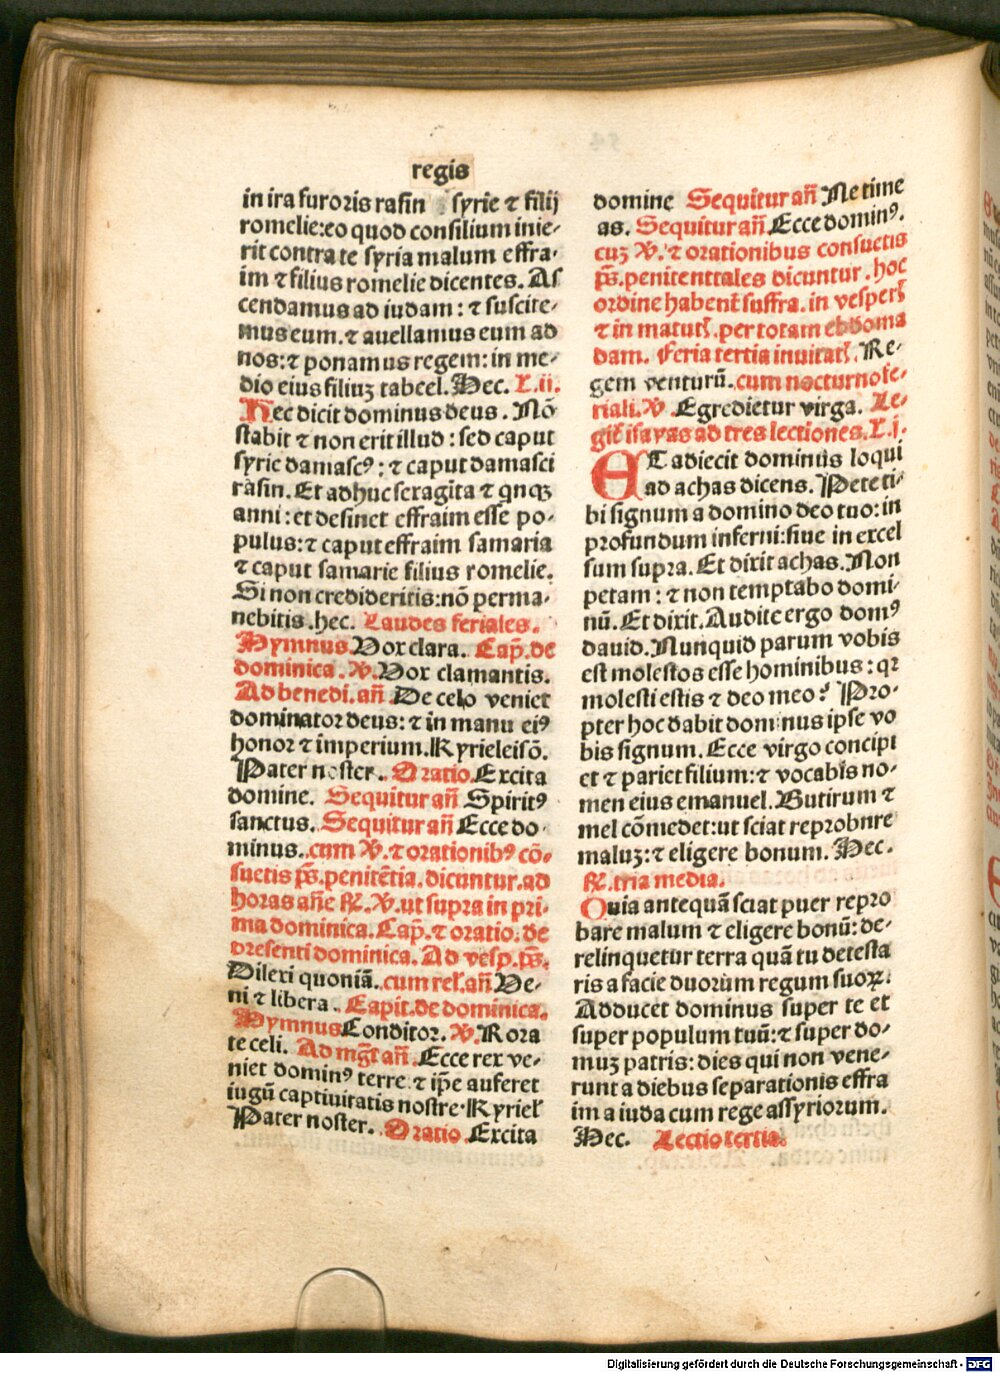 regis
in ira furoris rasin syrie ⁊ filij
romelie: eo quod consilium inie-
rit contra te syria malum effra-
im ⁊ filius romelie dicentes. As
cendamus ad iudam: ⁊ suscite-
mus eum. ⁊ auellamus eum ad
nos: ⁊ ponamus regem: in me-
dio eius filiuꝫ tabeel. Hec. L. ii.
Hec dicit dominus deus. Nō
stabit ⁊ non erit illud: sed caput
syrie damascꝰ: ⁊ caput damasci
rasin. Et adhuc seragīta ⁊ qnqꝫ
anni: et desinet effraim esse po-
pulus: ⁊ caput effraim samaria
⁊ caput samarie filius romelie.
Si non credideritis: nō perma-
nebitis. hec. Laudes feriales.
Hymnus Vox clara. Cap̄. de
dominica. ℣. Vox clamantis.
Ad benedi. añ. De celo veniet
dominator deus: ⁊ in manu eiꝰ
honor ⁊ imperium. Kyrieleisō.
Pater noster. Oratio. Excita
domine. Sequitur añ Spiritꝰ
sanctus. Sequitur añ Ecce do-
minus. cum ℣. ⁊ orationibꝰ cō-
suetis p̄s. penitētia. dicuntur. ad
horas añe ℟. ℣. ut supra in pri-
ma dominica. Cap̄. ⁊ oratio. de
presenti dominica. Ad vesp. p̄s.
Dilexi quoniā. cum rel. añ Ve-
ni ⁊ libera. Capit. de dominica.
Hymnus Conditor. ℣. Rora
te celi. Ad mgt̄ añ. Ecce rex ve-
niet dominꝰ terre ⁊ ip̄e auferet
iugū captiuitatis nostre. Kyriel
Pater noster. Oratio. Excita
domine Sequitur añ Ne time
as. Sequitur añ. Ecce dominꝰ.
cuꝫ ℣. ⁊ orationibus consuetis
p̄s. penitentiales dicuntur. hoc
ordine habent̄ suffra. in vesperꝭ
⁊ in matutꝭ. per totam ebdoma
dam. Feria tertia inuitatꝭ. Re-
gem venturū. cum nocturno fe-
riali. ℣. Egredietur virga. Le-
git̄ isayas ad tres lectiones. L. j.
ET adiecit dominus loqui
ad achas dicens. Pete ti-
bi signum a domino deo tuo: in
profundum inferni: siue in excel
sum supra. Et dixit achas. Non
petam: ⁊ non temptabo domi-
nū. Et dixit. Audite ergo domꝰ
dauid. Nunquid parum vobis
est molestos esse hominibus: qꝛ
molesti estis ⁊ deo meo? Pro-
pter hoc dabit dominus ipse vo
bis signum. Ecce virgo concipi
et ⁊ pariet filium: ⁊ vocabīs no-
men eius emanuel. Butirum ⁊
mel cōmedet: ut sciat reprobare
maluꝫ: ⁊ eligere bonum. Hec.
℟. tria media.
Quia antequā sciat puer repro
bare malum ⁊ eligere bonū: de-
relinquetur terra quā tu detesta
ris a facie duorum regum suoꝝ.
Adducet dominus super te et
super populum tuū: ⁊ super do-
muꝫ patris: dies qui non vene-
runt a diebus separationis effra
im a iuda cum rege assyriorum.
Hec. Lectio tertia.
Digitalisierung gefördert durch die Deutsche Forschungsgemeinschaft - DFG